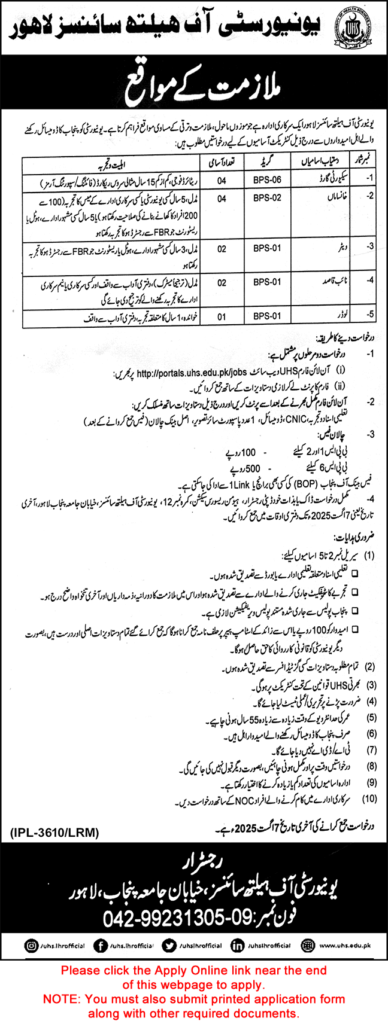 یونیورسٹی آف ہیلتھ سائنسز لاہور
ملازمت کے مواقع
یونیورسٹی آف ہیلتھ سائنسز لاہور ایک سرکاری ادارہ ہے جو موزوں ماحول، ملازمت و ترقی کے مساوی مواقع فراہم کرتا ہے۔ یونیورسٹی کو پنجاب کا ڈومیسائل رکھنے
والے اہل امیدواروں سے درج ذیل کنٹریکٹ آسامیوں کے لیے درخواستیں مطلوب ہیں:
نمبر شمار دستیاب اسامیاں گریڈ تعداد آسامی اہلیت و تجربہ
-1 سیکیورٹی گارڈ BPS-06 04 ریٹائرڈ فوجی، کم از کم 15 سال مثالی سروس ریکارڈ (فائٹنگ/سپورٹنگ آرمز)
-2 خانساماں BPS-02 04 مڈل، 5 سال کسی یونیورسٹی یا کسی سرکاری ادارے کے میس کا تجربہ (100 سے
200 افراد کا کھانا بنانے کی صلاحیت رکھتا ہو) یا 5 سال کسی مشہور ادارے، ہوٹل یا
ریسٹورنٹ جو FBR سے رجسٹرڈ ہو کا تجربہ رکھتا ہو
-3 ویٹر BPS-01 02 مڈل، 3 سال کسی مشہور ادارے، ہوٹل یا ریسٹورنٹ جو FBR سے رجسٹرڈ ہو کا تجربہ
رکھتا ہو
-4 نائب قاصد BPS-01 02 مڈل، (ترجیحاً میٹرک)، دفتری آداب سے واقف اور کسی سرکاری یا نیم سرکاری
ادارے کا تجربہ رکھنے والے کو ترجیح دی جائے گی
-5 لوڈر BPS-01 01 خواندہ، 1 سال کا متعلقہ تجربہ، دفتری آداب سے واقف
درخواست دینے کا طریقہ:
-1 درخواست دو مرحلوں پر مشتمل ہے:
(i) آن لائن فارم UHS ویب سائٹ http://portals.uhs.edu.pk/jobs پر بھریں۔
(ii) فارم کا پرنٹ لے کر لازمی دستاویزات کے ساتھ جمع کروائیں۔
-2 آن لائن فارم مکمل بھرنے کے بعد اسے پرنٹ کریں اور درج ذیل دستاویزات ساتھ منسلک کریں:
تعلیمی اسناد و تجربہ، CNIC، ڈومیسائل، 1 عدد پاسپورٹ سائز تصویر، اصل بینک چالان (فیس جمع کروانے کے بعد)
-3 چالان فیس:
بی پی ایس 1 اور 2 کیلئے - 100 روپے
بی پی ایس 6 کیلئے - 500 روپے
فیس بینک آف پنجاب (BOP) کی کسی بھی برانچ یا 1Link سے ادا کی جا سکتی ہے۔
-4 مکمل درخواست ڈاک یا بذات خود ڈپٹی رجسٹرار، ہیومن ریسورس سیکشن، کمرہ نمبر 12، یونیورسٹی آف ہیلتھ سائنسز، خیابان جامعہ پنجاب لاہور، آخری
تاریخ یعنی 7 اگست 2025 تک دفتری اوقات میں جمع کروائیں۔
ضروری ہدایات:
(1) سیریل نمبر 2 تا 5 اسامیوں کیلئے:
تعلیمی اسناد متعلقہ تعلیمی ادارے یا بورڈ سے تصدیق شدہ ہوں۔
تجربے کا سرٹیفکیٹ جاری کرنے والے ادارے سے تصدیق شدہ ہو اور اس میں ملازمت کا دورانیہ، ذمہ داریاں اور آخری تنخواہ واضح درج ہو۔
پنجاب پولیس سے جاری شدہ مستند پولیس ویریفکیشن لازمی ہے۔
امیدوار کو 100 روپے یا اس سے زائد کے اسٹامپ پیپر پر حلف نامہ جمع کرانا ہوگا کہ جمع کرائے گئے تمام دستاویزات اصلی اور درست ہیں، بصورت
دیگر یونیورسٹی کو قانونی کارروائی کا حق حاصل ہوگا۔
(2) تمام مطلوبہ دستاویزات کسی گزٹیڈ افسر سے تصدیق شدہ ہوں۔
(3) بھرتی UHS قوانین کے تحت کنٹریکٹ پر ہوگی۔
(4) ضرورت پڑنے پر تحریری/عملی ٹیسٹ لیا جائے گا۔
(5) عمر کی حد انٹرویو کے وقت زیادہ سے زیادہ 55 سال ہونی چاہیے۔
(6) صرف پنجاب کا ڈومیسائل رکھنے والے امیدوار اہل ہیں۔
(7) ٹی اے/ڈی اے نہیں دیا جائے گا۔
(8) درخواستیں وقت پر اور مکمل ہونی چاہئیں، بصورت دیگر قبول نہیں کی جائیں گی۔
(9) ادارہ اسامیوں کی تعداد کم یا زیادہ کرنے کا اختیار رکھتا ہے۔
(10) سرکاری ادارے میں کام کرنے والے افراد NOC کے ساتھ درخواست دیں۔
درخواست جمع کرانے کی آخری تاریخ 7 اگست 2025ء ہے۔
(IPL-3610/LRM)
رجسٹرار
یونیورسٹی آف ہیلتھ سائنسز، خیابان جامعہ پنجاب، لاہور
فون نمبر: 042-99231305-09
/uhs.lhrofficial /uhs.lhrofficial /uhslhrofficial /uhslhrofficial www.uhs.edu.pk
Please click the Apply Online link near the end
of this webpage to apply.
NOTE: You must also submit printed application form
along with other required documents.